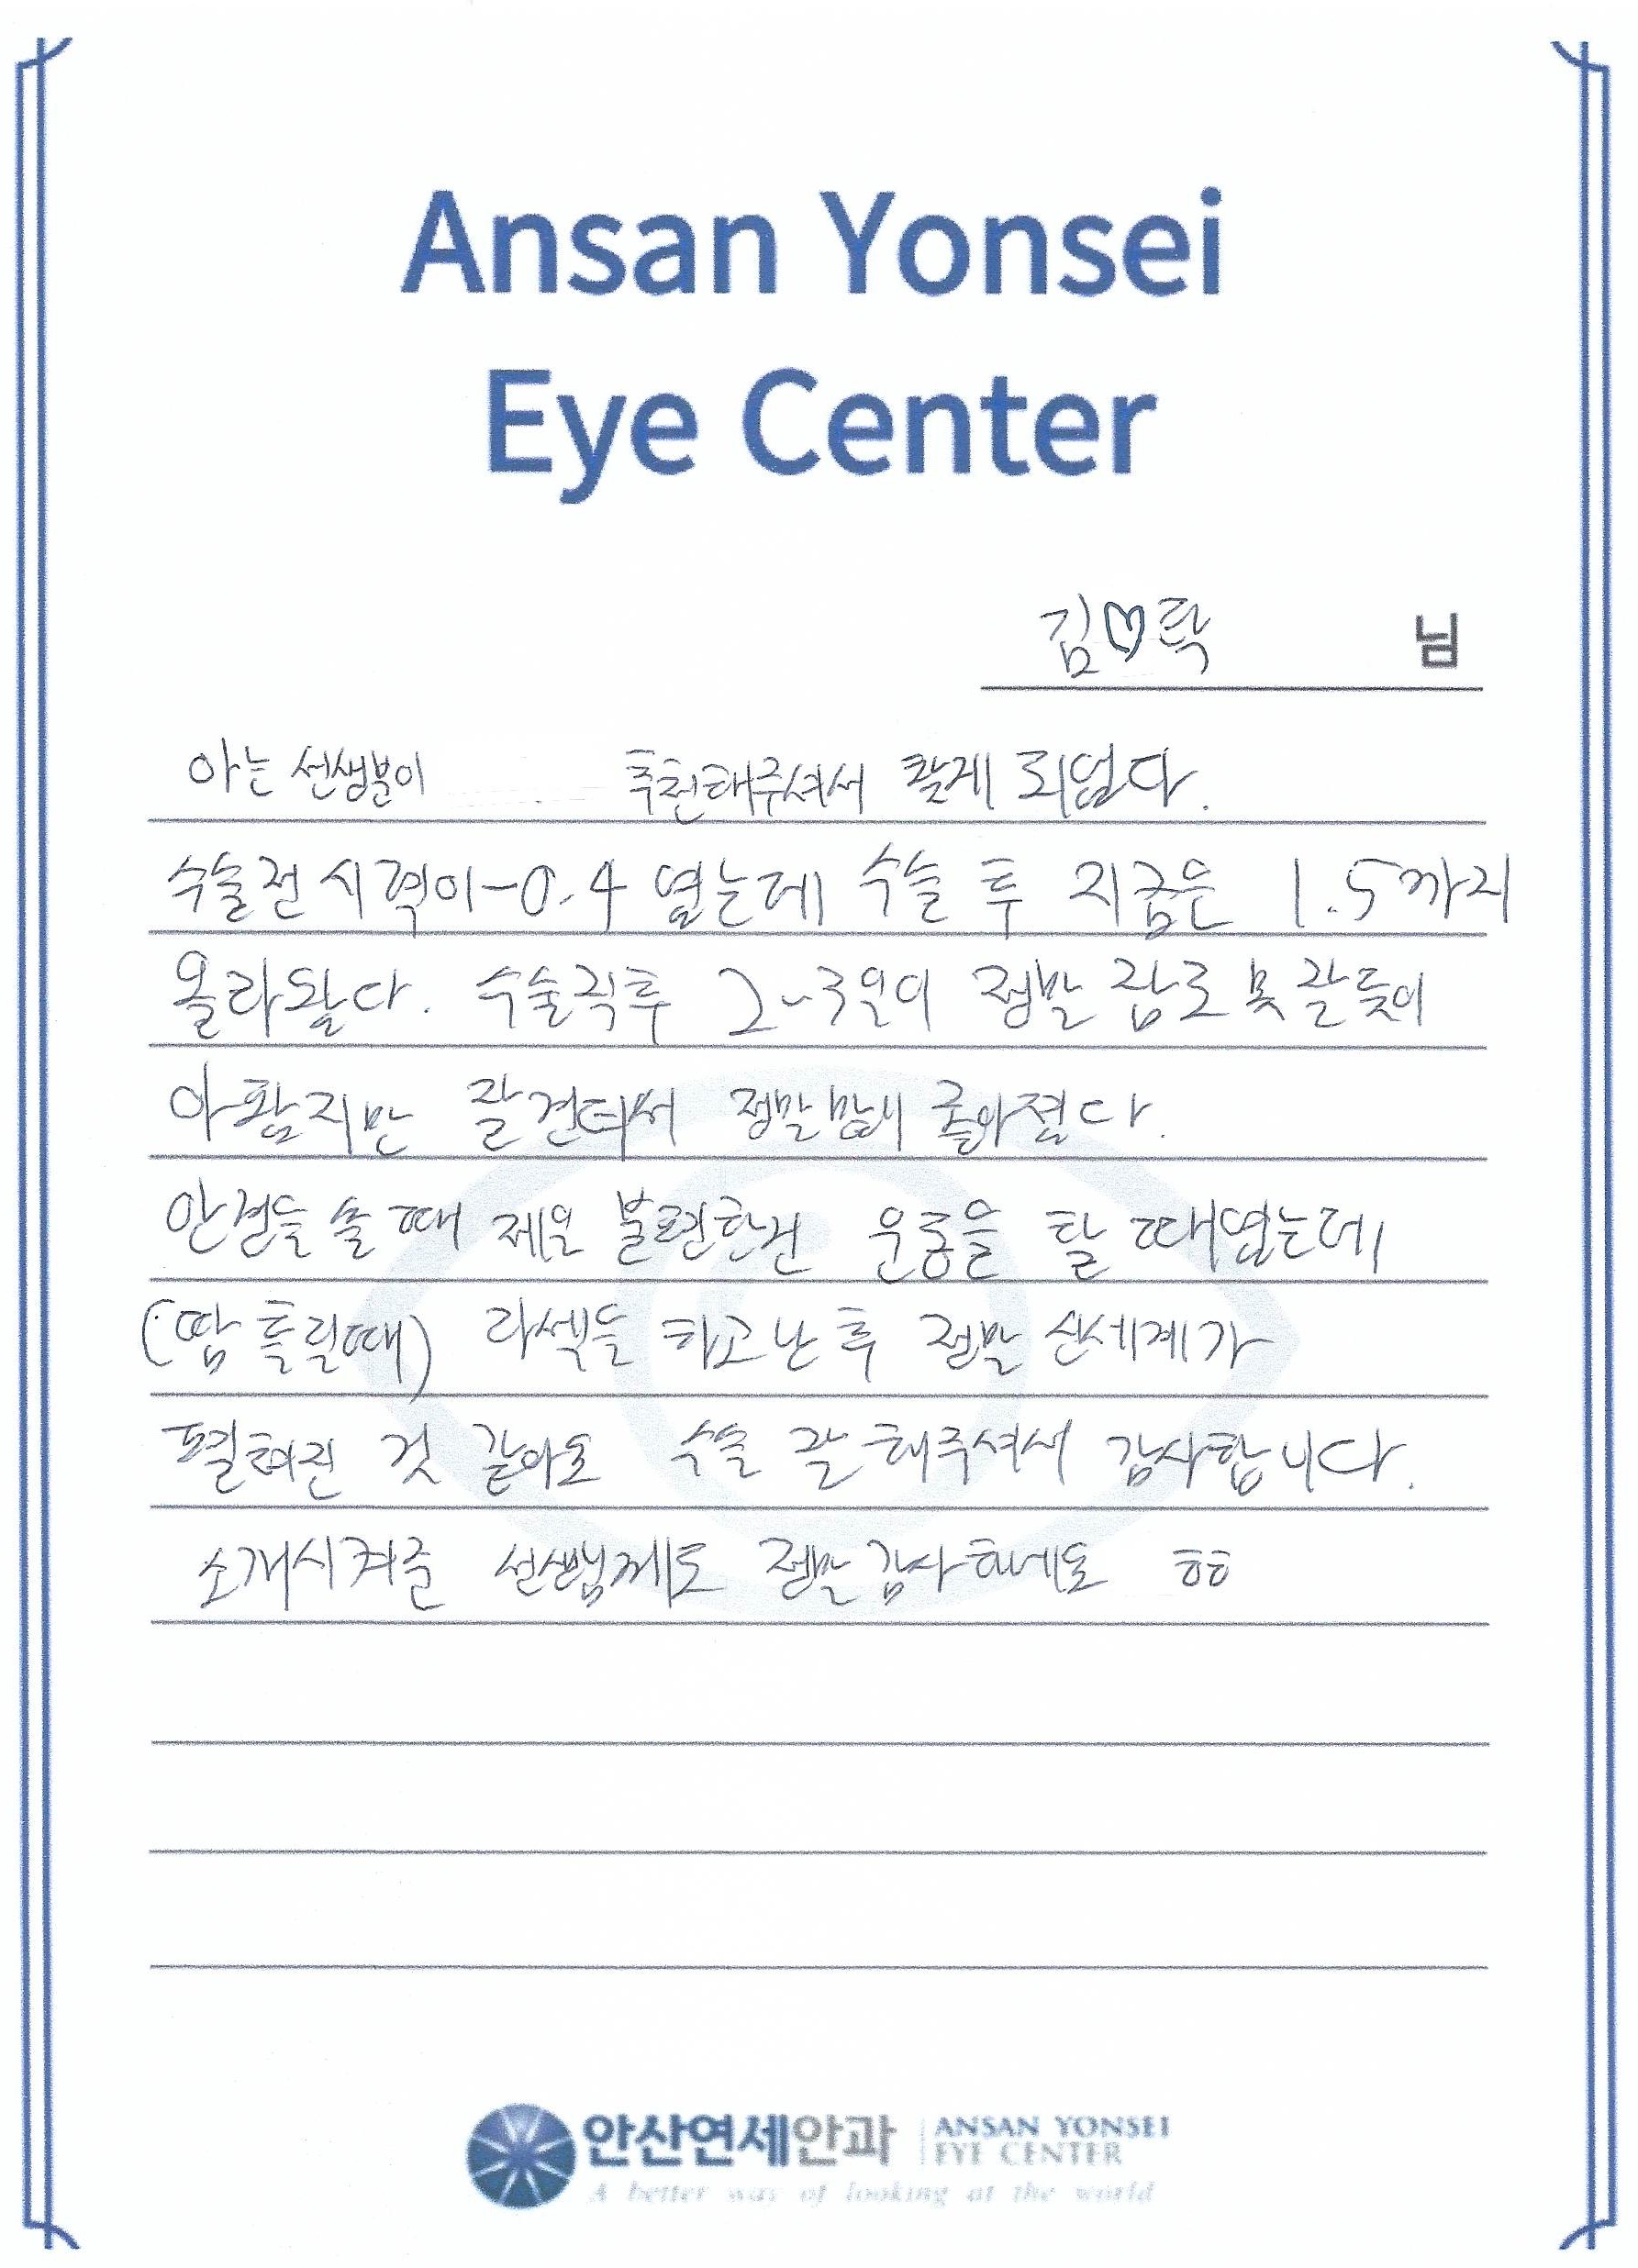 Ansan Yonsei
Eye Center
김♡탁 님
아는 선생분이 추천해주셔서 찾게 되었다.
수술전 시력이 -0.4 였는데 수술 후 지금은 1.5까지
올라왔다. 수술직후 2~3일이 정말 잠도 못 잘듯이
아팠지만 잘견뎌서 정말 많이 좋아졌다.
안경을 쓸 때 제일 불편한건 운동을 할 때였는데
(땀 흘릴때) 라섹을 하고 난 후 정말 신세계가
펼쳐진 것 같아요 수술 잘 해주셔서 감사합니다.
소개시켜준 선생님께도 정말 감사하네요 ㅎㅎ
안산연세안과 ANSAN YONSEI
EYE CENTER
A better way of looking at the world